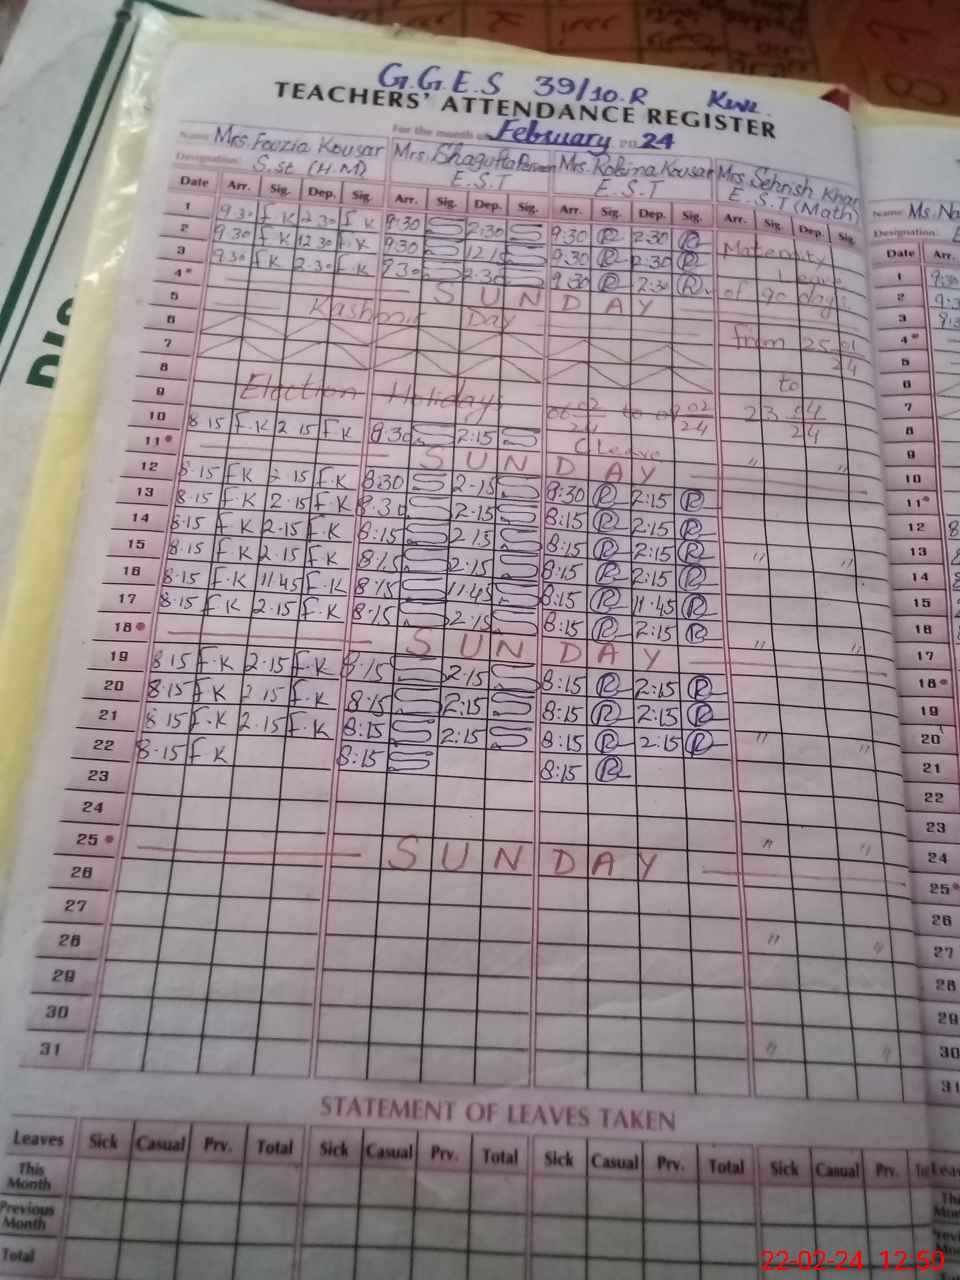 G.G.E.S 39/10.R Kwl.
TEACHERS' ATTENDANCE REGISTER
For the month of February 20 24
Name Mrs. Fouzia Kousar Mrs. Shagufta Perveen Mrs. Robina Kousar Mrs Sehrish Khan
Designation: S.St (H.M) E.S.T E.S.T E.S.T (Math)
Date Arr. Sig. Dep. Sig. Arr. Sig. Dep. Sig. Arr. Sig. Dep. Sig. Arr. Sig. Dep. Sig.
1 9.30 F.K 2.30 F.K 9:30 2:30 9:30 R 2:30 R Maternity
2 9.30 F.K 12.30 F.K 9:30 9:30 R 2:30 R Leave
3 9.30 F.K 2.30 F.K 9.30 2:30 9:30 R 2:30 R of 90 days
4* SUNDAY
5 Kashmir Day from 25 01/24
6
7 to
8 Election Holidays 06 02/24 to 09 02/24 23 04/24
9
10 8.15 F.K 2.15 F.K 8:30 2:15 C Leave
11* SUNDAY " "
12 8.15 F.K 2.15 F.K 8:30 2:15 8:30 R 2:15 R
13 8.15 F.K 2.15 F.K 8.30 2:15 8:15 R 2:15 R
14 8.15 F.K 2.15 F.K 8:15 2:15 8:15 R 2:15 R
15 8.15 F.K 2.15 F.K 8:15 2:15 8:15 R 2:15 R " "
16 8.15 F.K 11.45 F.K 8:15 11.45 8:15 R 11.45 R
17 8.15 F.K 2.15 F.K 8:15 2:15 8:15 R 2:15 R
18* SUNDAY " "
19 8.15 F.K 2.15 F.K 8:15 2:15 8:15 R 2:15 R
20 8.15 F.K 2.15 F.K 8:15 2:15 8:15 R 2:15 R
21 8.15 F.K 2.15 F.K 8:15 2:15 8:15 R 2:15 R " "
22 8.15 F.K 8:15 8:15 R
23
24
25* SUNDAY " "
26
27
28 " "
29
30
31 " "
STATEMENT OF LEAVES TAKEN
Leaves Sick Casual Prv. Total Sick Casual Prv. Total Sick Casual Prv. Total Sick Casual Prv.
This Month
Previous Month
Total
Name: Ms. Na
Designation:
Date Arr.
1 9:30
2
3
4*
5
6
7
8
9
10
11*
12 8
13
14
15
16
17
18*
19
20
21
22
23
24
25*
26
27
28
29
30
31
22-02-24 12:50